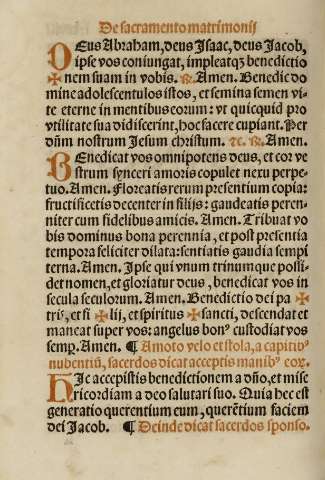 De sacramento matrimonij
DEus Abraham, deus Isaac, deus Jacob,
ipse vos coniungat, impleatqꝫ benedictio
✠nem suam in vobis. ℟. Amen. Benedic do
mine adolescentulos istos, et semina semen vi-
te eterne in mentibus eorum: vt quicquid pro
vtilitate sua didiscerint, hoc facere cupiant. Per
dn̄m nostrum Jesum christum. ⁊c. ℟. Amen.
BEnedicat vos omnipotens deus, et cor ve
strum synceri amoris copulet nexu perpe-
tuo. Amen. Floreatis rerum presentium copia:
fructificetis decenter in filijs: gaudeatis peren-
niter cum fidelibus amicis. Amen. Tribuat vo
bis dominus bona perennia, et post presentia
tempora feliciter dilata: sentiatis gaudia sempi
terna. Amen. Ipse qui vnum trinumque possi-
det nomen, et gloriatur deus, benedicat vos in
secula seculorum. Amen. Benedictio dei pa ✠
tris, et fi ✠ lij, et spiritus ✠ sancti, descendat et
maneat super vos: angelus bonꝰ custodiat vos
semꝑ. Amen. ¶ Amoto velo et stola, a capitibꝰ
nubentiū, sacerdos dicat acceptis manibꝰ eoꝝ.
HIc accepistis benedictionem a dño, et mise
ricordiam a deo salutari suo. Quia hec est
generatio querentium eum, querētium faciem
dei Jacob. ¶ Deinde dicat sacerdos sponso.